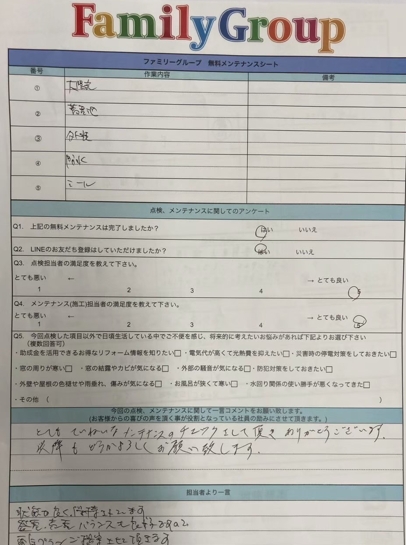 FamilyGroup
ファミリーグループ 無料メンテナンスシート
番号 作業内容 備考
① 太陽光
② 蓄電池
③ 外壁
④
⑤
点検、メンテナンスに関してのアンケート
Q1. 上記の無料メンテナンスは完了しましたか? はい いいえ
Q2. LINEのお友だち登録はしていただけましたか? はい いいえ
Q3. 点検担当者の満足度を教えて下さい。
とても悪い ← → とても良い
1 2 3 4 5
Q4. メンテナンス(施工)担当者の満足度を教えて下さい。
とても悪い ← → とても良い
1 2 3 4 5
Q5. 今回点検した項目以外で日頃生活している中でご不便を感じ、将来的に考えたいお悩みがあれば下記よりお選び下さい
(複数回答可)
・助成金を活用できるお得なリフォーム情報を知りたい□ ・電気代が高くて光熱費を抑えたい□ ・災害時の停電対策をしておきたい□
・窓の周りが寒い□ ・窓の結露やカビが気になる□ ・外部の騒音が気になる□ ・防犯対策をしておきたい□
・外壁や屋根の色褪せや雨垂れ、傷みが気になる□ ・お風呂が狭くて寒い□ ・水回り関係の使い勝手が悪くなってきた□
・その他 ( )
今回の点検、メンテナンスに関して一言コメントをお願い致します。
(お客様からの喜びの声を頂く事が役割となっている社員の励みにさせて頂きます。)
とてもていねいなメンテナンスのチェックをして頂きありがとうございます。
以降もどうかよろしくお願い致します。
担当者より一言